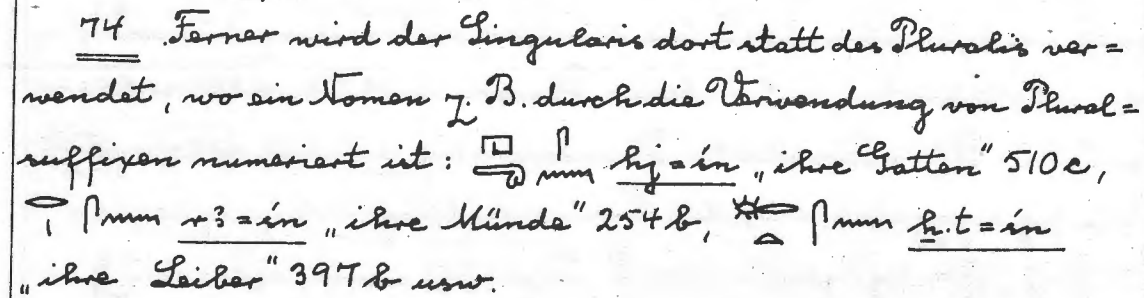 74 Ferner wird der Singularis dort statt des Pluralis ver=
wendet, wo ein Nomen z. B. durch die Verwendung von Plural=
suffixen numeriert ist: 𓉔𓂸𓋴𓈖 hj=śn „ihre Gatten" 510c,
𓂋𓏤𓋴𓈖 r3=śn „ihre Münde" 254b, 𓄡𓏏𓋴𓈖 ẖ.t=śn
„ihre Leiber" 397b usw.